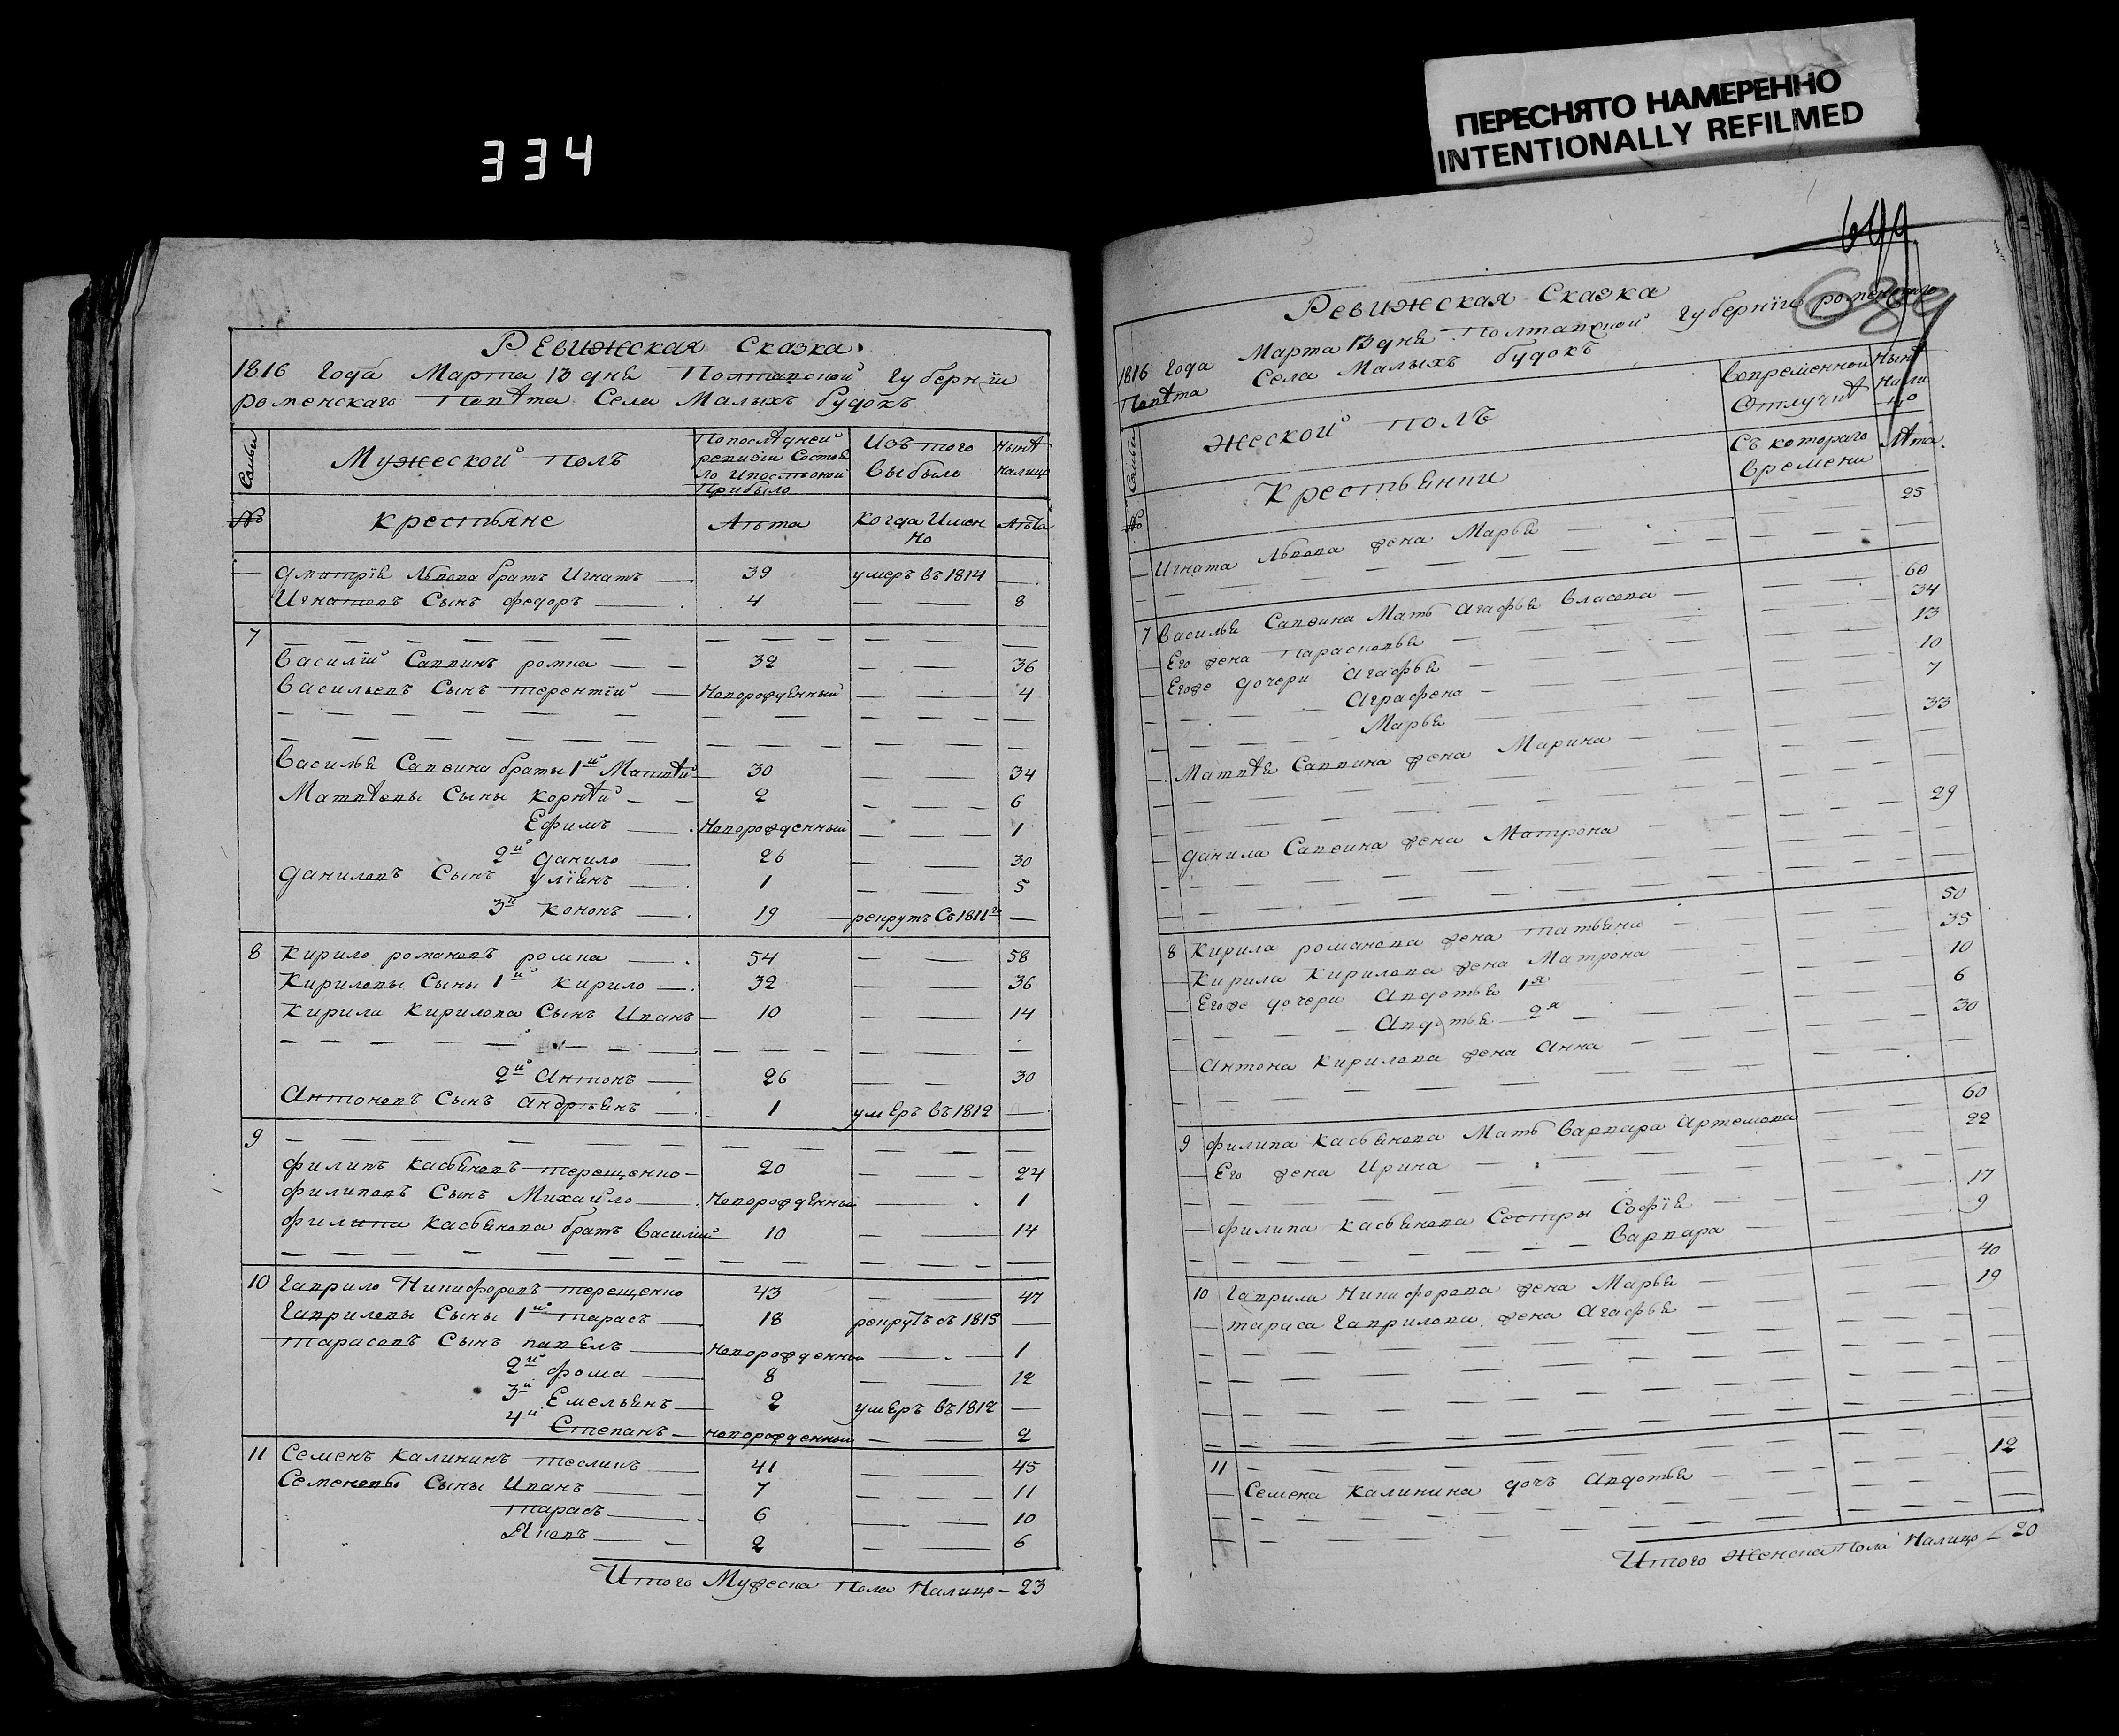 334
ПЕРЕСНЯТО НАМЕРЕННО
INTENTIONALLY REFILMED
Ревижская Сказка
1816 Года Марта 13 дня Полтавской Губернїи
роменского Повѣта Села Малыхъ будокъ
Семьи
Мужеской полъ
Попослѣдней ревизїи Состояло Ипослѣоной Прибыло
Изъ того Выбыло
Нынѣ налицо
№
крестьяне
Лѣта
Когда Имен но
Лѣта
— Дмитрїя Львова братъ Игнатъ — 39 умеръ въ 1814 —
Игнатовъ Сынъ федоръ — 4 — 8
7
Василїй Саввинъ ромпа — 32 — 36
Васильевъ Сынъ терентїй — Новорожденный — 4
Василья Саввина браты 1й Матвѣй 30 34
Матвѣевы Сыны корнѣй — 2 — 6
Ефимъ — Новорожденный — 1
2й данило — 26 — 30
даниловъ Сынъ улїянъ — 1 — 5
3й кононъ — 19 — рекрутъ Съ 1811го —
8 Кирило романовъ ромпа — 54 — 58
Кириловы Сыны 1й Кирило — 32 — 36
Кирила Кирилова Сынъ Иванъ — 10 — 14
2й Антонъ — 26 — 30
Антоновъ Сынъ Андрѣянъ — 1 умЕръ въ 1812 —
9
филипъ Касьяновъ терещенко — 20 — 24
филиповъ Сынъ Михайло — Новорожденный — 1
филипа Касьянова братъ Василий — 10 — 14
10 Гаврило Никифоровъ терещенко 43 — 47
Гавриловы Сыны 1й тарасъ — 18 рекрутъ съ 1815 —
тарасовъ Сынъ павелъ — новорожденный — 1
2й фома — 8 — 12
3й Емельянъ — 2 умЕръ въ 1812 —
4й Степанъ — новорожденный — 2
11 Семенъ Калининъ — 41 — 45
Семеновы Сыны Иванъ — 7 — 11
тарасъ — 6 — 10
Яковъ — 2 — 6
Итого Мужеска пола Налицо — 23
699
689
Ревижская Сказка
1816 Года Марта 13 дня Полтавской Губернїи роменского
Повѣта Села Малыхъ будокъ
Семьи
жеской полъ
Вовременной Отлучкѣ
Нынѣ нали цо
№
Крестьянки
Съ котораго времени
Лѣта
— Игната Львова жена Марья 25
7 Василья Саввина Мать Агафья Власова — 60
— Его жена Парасковья — 34
— Егоже дочери Агафья — 13
Аграфена — 10
Марья — 7
— Матвѣя Саввина жена Марина — 33
— данила Саввина жена Матрона — 29
8 Кирила романова жена татьяна — 50
— Кирила Кирилова жена Матрона 35
— Егоже дочери Авдотья 1я 10
Авдотья 2я — 6
— Антона Кирилова жена Анна — 30
9 филипа касьянова Мать Варвара Артемова 60
— Его жена Ирина — 22
— филипа касьянова Сестры Софїя — 17
Варвара — 9
10 Гаврила Никифорова жена Марья — 40
— тараса Гаврилова жена Агафья — 19
11
— Семена Калинина дочь Авдотья — 12
Итого Женска пола Налицо — 20